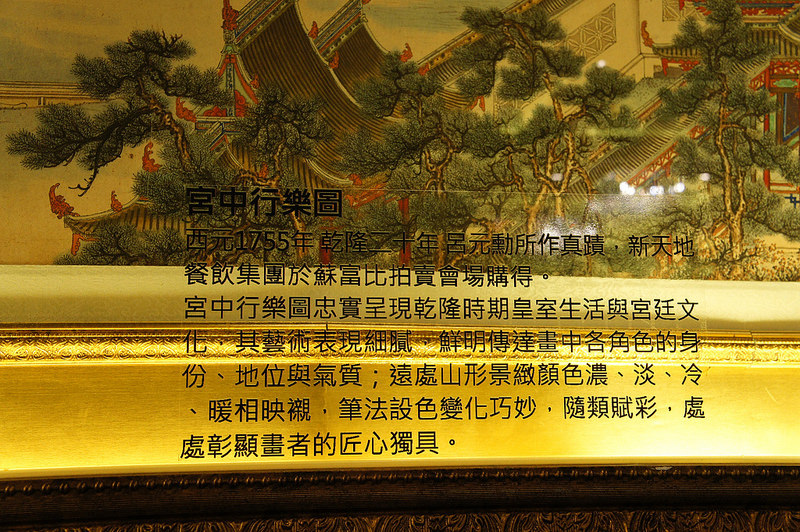 宮中行樂圖
西元1755年 乾隆二十年 呂元勳所作真蹟，新天地
餐飲集團於蘇富比拍賣會場購得。
宮中行樂圖忠實呈現乾隆時期皇室生活與宮廷文
化，其藝術表現細膩，鮮明傳達畫中各角色的身
份、地位與氣質；遠處山形景緻顏色濃、淡、冷
、暖相映襯，筆法設色變化巧妙，隨類賦彩，處
處彰顯畫者的匠心獨具。